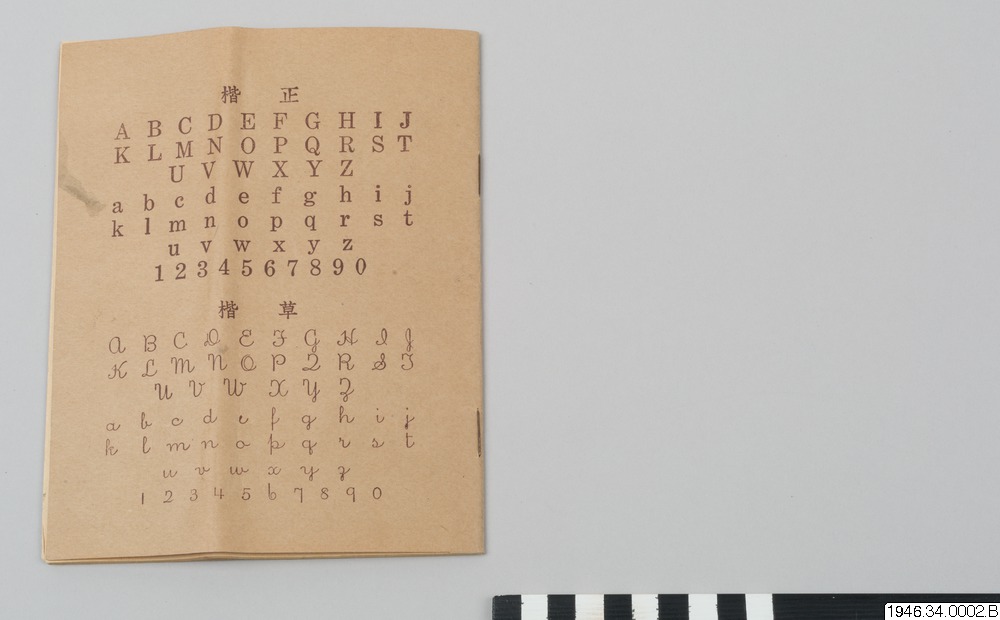 楷 正
A B C D E F G H I J
K L M N O P Q R S T
U V W X Y Z
a b c d e f g h i j
k l m n o p q r s t
u v w x y z
1 2 3 4 5 6 7 8 9 0
楷 草
A B C D E F G H I J
K L M N O P Q R S T
U V W X Y Z
a b c d e f g h i j
k l m n o p q r s t
u v w x y z
1 2 3 4 5 6 7 8 9 0
1946.34.0002.B